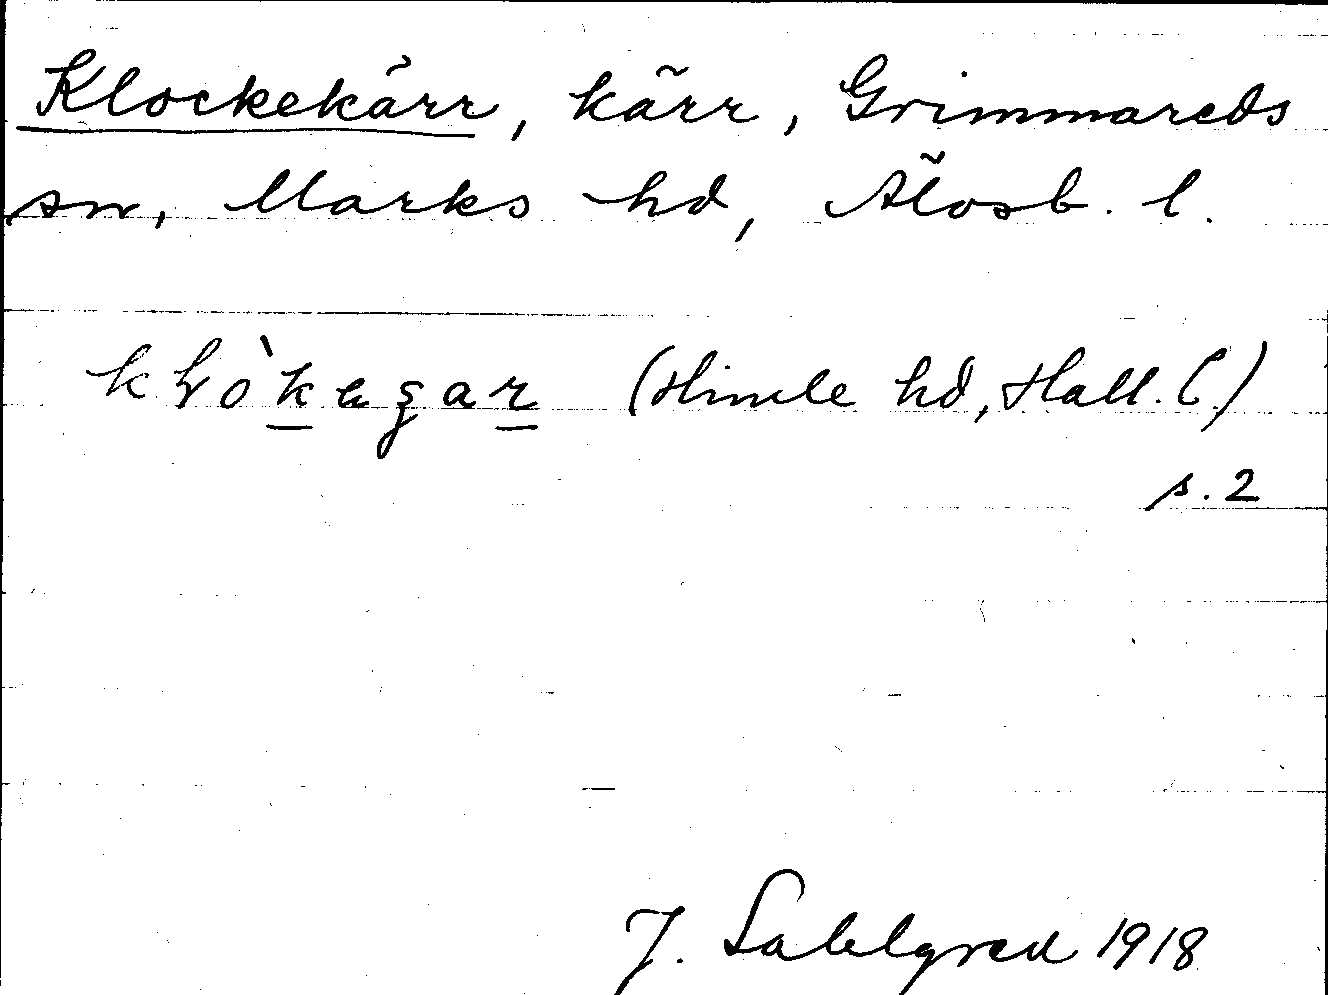 Klockekärr, kärr, Grimmareds
sn, Marks hd, Älvsb. l.
(Himle hd, Hall. l.)
s. 2
J. Sahlgren 1918